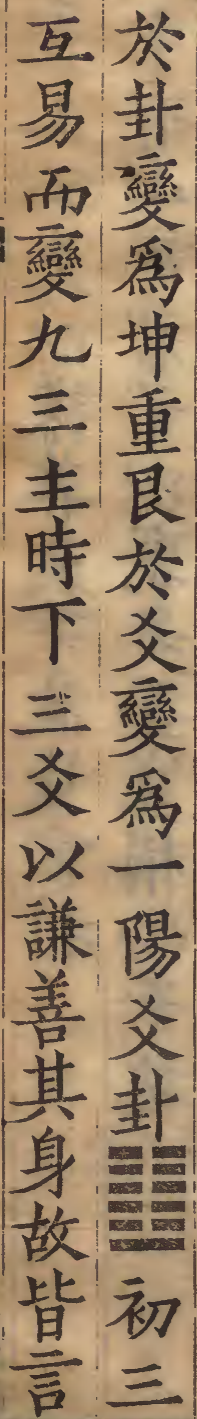 於卦變爲坤重艮於爻變爲一陽爻卦䷗初三
互易而變九三主時下三爻以謙善其身故皆言